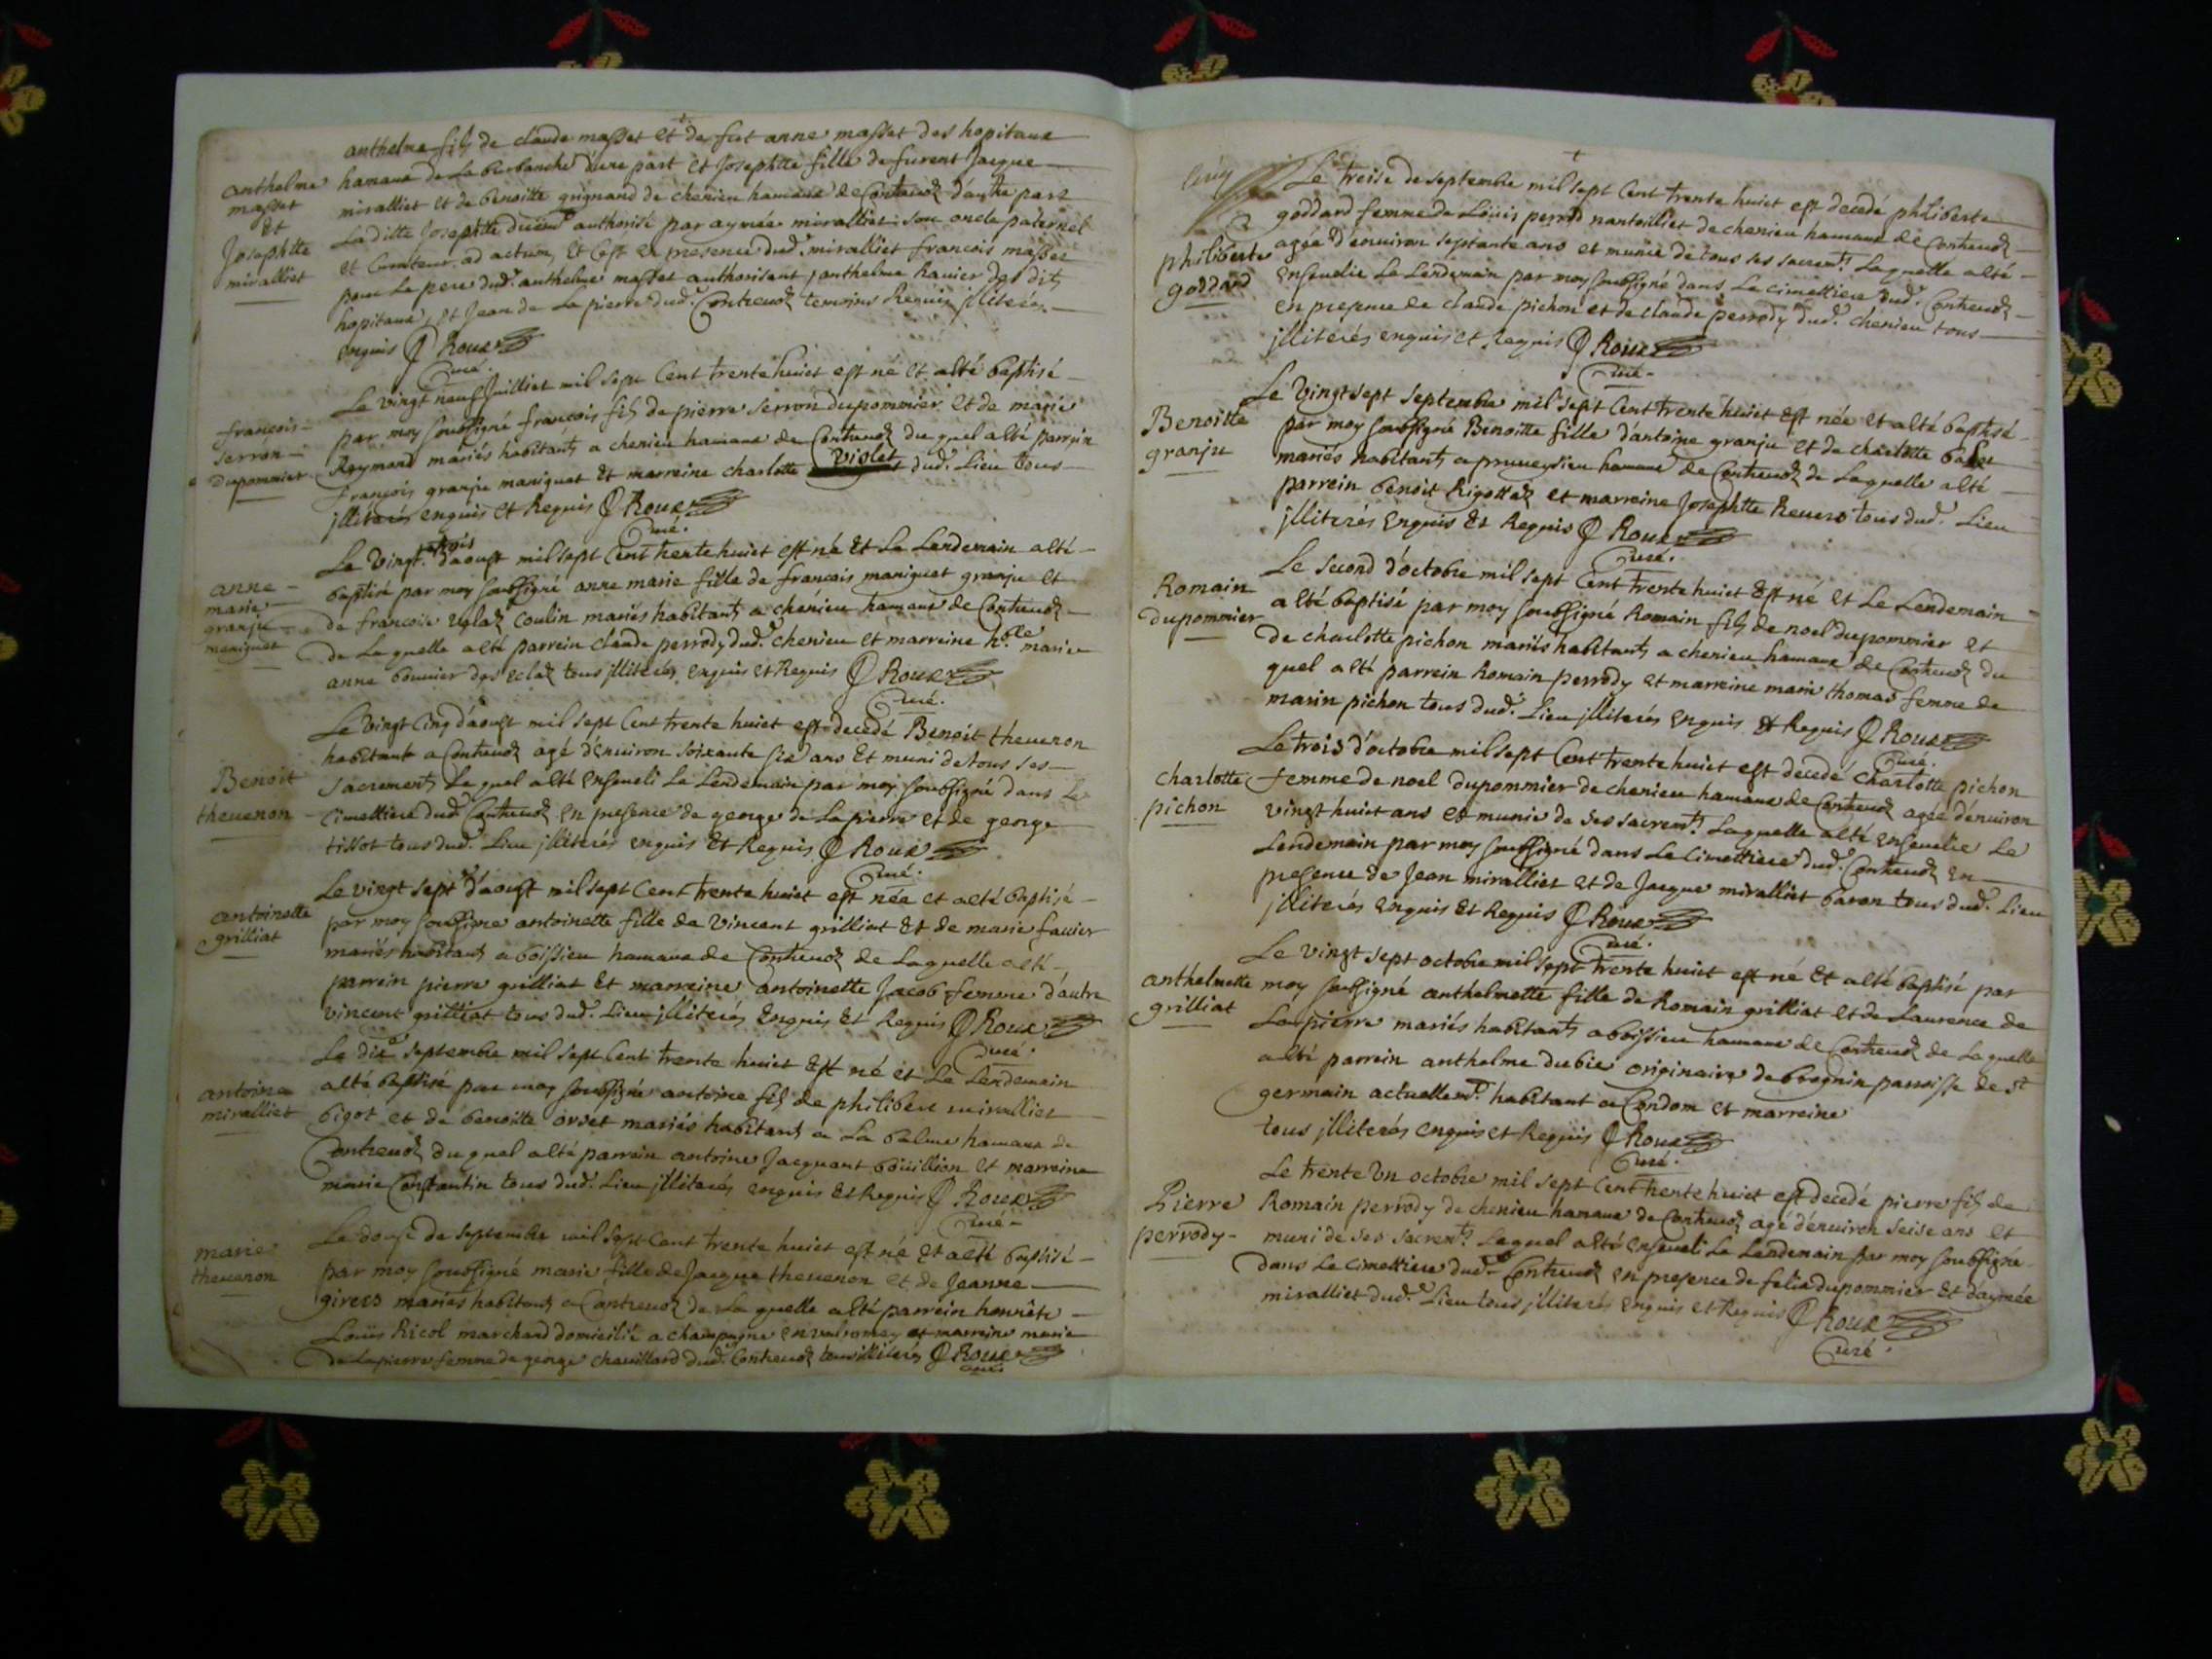 anthelme fils de claude masset et de fut anne masset des hopitaux
anthelme
masset
et
Josephtte
miralliet
hamaux de La burbanche d'une part et Josephtte fille de furent Jacque
miralliet et de benoitte guignand de chenieu hamaux de Contreuoz d'autre part
La ditte Josephtte authorisé par aymée miralliet son oncle paternel
et Curateur ad actum, et C'est en presence dud. miralliet francois masset
pour Le pere dud. anthelme masset authorisant, anthelme hauier des dits
hopitaux, et Jean de La pierre dud. Contreuoz temoins Requis jlliterés
enquis Roux
Curé.
francois
serron
dupommier
Le vingt neuf Juilliet mil sept Cent trente huict est né et a été baptisé
par moy soubsigné francois fils de pierre serron dupommier et de marie
Reymond mariés habitants a chenieu hamaux de Contreuoz du quel a été parrein
francois granju maniquet et marreine charlotte violet dud. Lieu tous
jlliterés enquis et Requis Roux
Curé.
anne
marie
granju
maniquet
Le vingt trois d'aoust mil sept Cent trente huict est né et Le Lendemain a été
baptisé par moy soubsigné anne marie fille de francois maniquet granju et
de francoise Coulin mariés habitants a chénieu hamaux de Contreuoz
de La quelle a été parrein claude perrody dud. chenieu et marreine hble marie
anne bouuier des eclaz tous jlliterés enquis et Requis Roux
Curé.
Benoit
theuenon
Le vingt Cinq d'aoust mil sept Cent trente huict est decedé Benoit theuenon
habitant a Contreuoz agé d'enuiron soixante six ans et muni de tous ses
sacrements Le quel a été enseueli Le Lendemain par moy soubsigné dans Le
Cimettiere dud. Contreuoz en presence de george de Lapierre et de george
tissot tous dud. Lieu jlliterés enquis et Requis Roux
Curé.
antoinette
grilliat
Le vingt sept d'aoust mil sept Cent trente huict est née et a été baptisé
par moy soubsigné antoinette fille de vincent grilliat et de marie fauier
mariés habitants a boissieu hamaux de Contreuoz de La quelle a été
parrein pierre grilliat et marreine antoinette Jacob femme d'autre
vincent grilliat tous dud. Lieu jlliterés enquis et Requis Roux
Curé.
antoine
miralliet
Le dix septembre mil sept Cent trente huict est né et Le Lendemain
a été baptisé par moy soubsigné antoine fils de philibert miralliet
bigot et de benoitte orset mariés habitants a La balme hamaux de
Contreuoz du quel a été parrein antoine Jacquant boüillion et marreine
marie Constantin tous dud. Lieu jlliterés enquis et Requis Roux
Curé
marie
theuenon
Le douse de septembre mil sept Cent trente huict est né et a été baptisé
par moy soubsigné marie fille de Jacque theuenon et de Jeanne
girers mariés habitants a Contreuoz de La quelle a été parrein honnête
Loüis Ricol marchand domicilié a champagne en valromey et marreine marie
de Lapierre femme de george chauillard dud. Contreuoz tous jlliterés Roux
Curé
philiberte
goddard
Le treise de septembre mil sept Cent trente huict est decedé philiberte
goddard femme de Loüis perrod nantoilliet de chenieu hamaux de Contreuoz
agée d'enuiron septante ans et munie de tous ses sacremts. Laquelle a été
enseuelie Le Lendemain par moy soubsigné dans Le cimettiere dud. Contreuoz
en presence de claude pichon et de claude perrody dud. chenieu tous
jlliterés enquis et Requis Roux
Curé
Benoitte
granju
Le vingt sept septembre mil sept Cent trente huict est née et a été baptisé
par moy soubsigné Benoitte fille d'antoine granju et de charlotte
mariés habitants a pruneysieu hamaux de Contreuoz de Laquelle a été
parrein benoit Rigottaz et marreine Josephtte Reuers tous dud. Lieu
jlliterés enquis et Requis Roux
Curé.
Romain
dupommier
Le second d'octobre mil sept Cent trente huict est né et Le Lendemain
a été baptisé par moy soubsigné Romain fils de noel dupommier et
de charlotte pichon mariés habitants a chenieu hamaux de Contreuoz du
quel a été parrein Romain perrody et marreine marie thomas femme de
marin pichon tous dud. Lieu jlliterés enquis et Requis Roux
Curé.
charlotte
pichon
Le trois d'octobre mil sept Cent trente huict est decedé charlotte pichon
femme de noel dupommier de chenieu hamaux de Contreuoz agée d'enuiron
vingt huict ans et munie de ses sacremts. Laquelle a été enseuelie Le
Lendemain par moy soubsigné dans Le Cimettiere dud. Contreuoz en
presence de Jean miralliet et de Jacque miralliet baron tous dud. Lieu
jlliterés enquis et Requis Roux
Curé.
anthelmette
grilliat
Le vingt sept octobre mil sept trente huict est né et a été baptisé par
moy soubsigné anthelmette fille de Romain grilliat et de Laurence de
Lapierre mariés habitants a boissieu hamaux de Contreuoz de Laquelle
a été parrein anthelme dubie originaire de brognin parroisse de st
germain actuellemt. habitant a Condom et marreine
tous jlliterés enquis et Requis Roux
Curé.
Pierre
perrody
Le trente un octobre mil sept Cent trente huict est decedé pierre fils de
Romain perrody de chenieu hamaux de Contreuoz agé d'enuiron seise ans et
muni de ses sacremts. Lequel a été enseueli Le Lendemain par moy soubsigné
dans Le cimettiere dud. Contreuoz en presence de felix dupommier et d'aymée
miralliet dud. Lieu tous jlliterés enquis et Requis Roux
Curé.